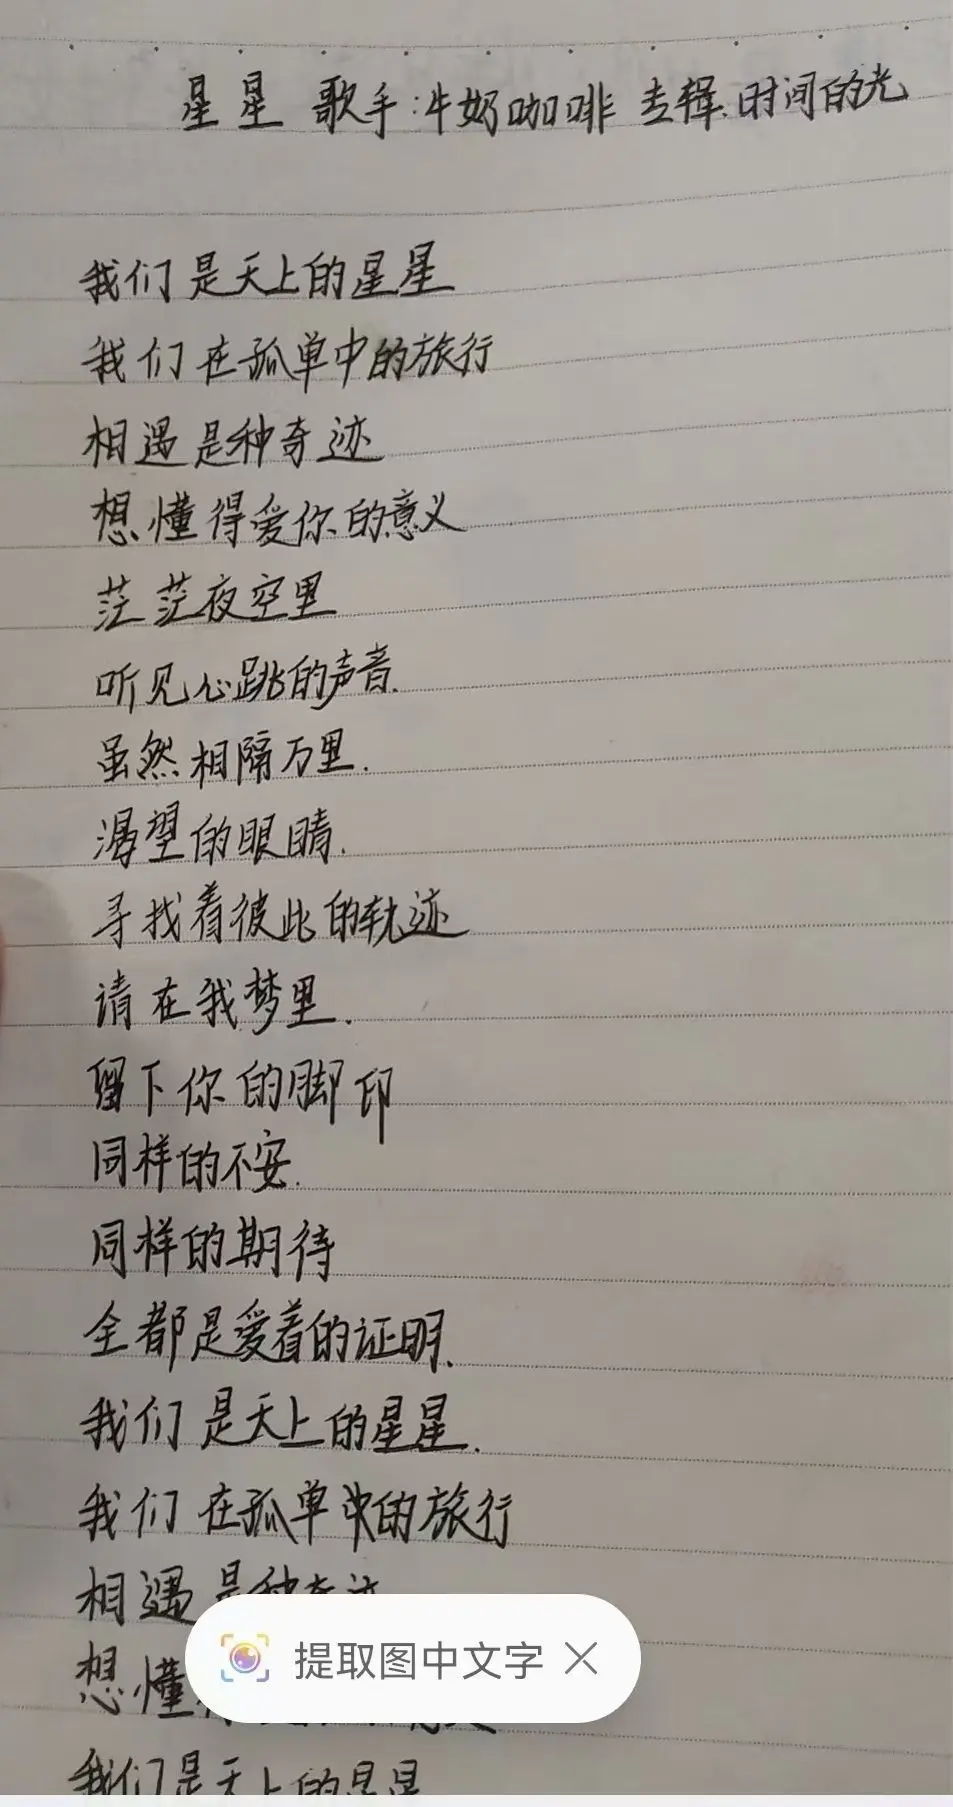 星星 歌手:牛奶咖啡 专辑.时间的光
我们是天上的星星
我们在孤单中的旅行
相遇是种奇迹
想懂得爱你的意义
茫茫夜空里
听见心跳的声音.
虽然相隔万里.
渴望的眼睛.
寻找着彼此的轨迹
请在我梦里.
留下你的脚印
同样的不安.
同样的期待
全都是爱着的证明.
我们是天上的星星.
我们在孤单中的旅行
相遇是种奇迹
想懂
提取图中文字
我们是天上的星星